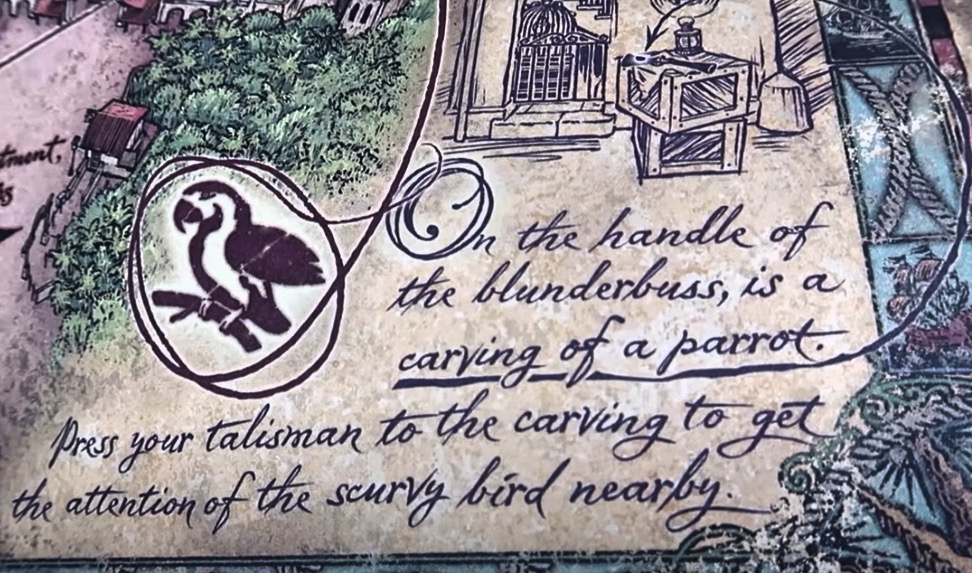 tment,
On the handle of
the blunderbuss, is a
carving of a parrot.
Press your talisman to the carving to get
the attention of the scurvy bird nearby.